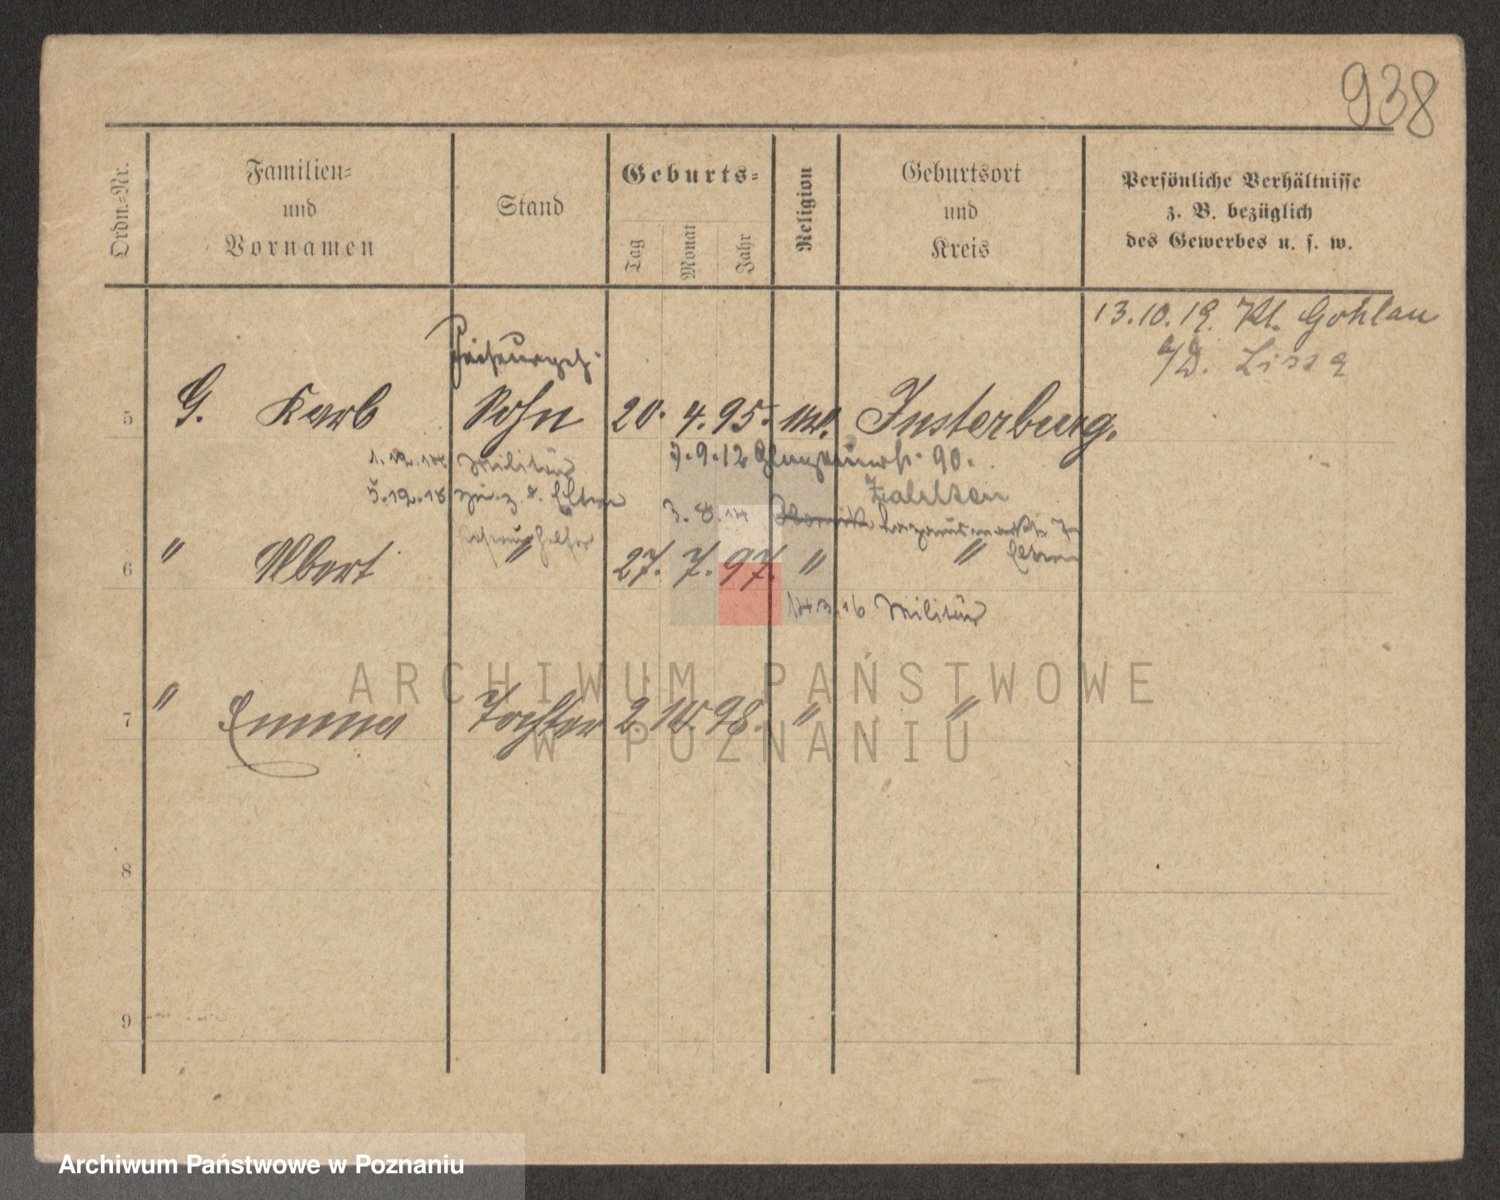 938
Ordn.-Nr.
Familien-
und
Vornamen
Stand
Geburts-
Tag
Monat
Jahr
Religion
Geburtsort
und
Kreis
Persönliche Verhältnisse
z. B. bezüglich
des Gewerbes u. s. w.
13.10.19. Kl. Gohlau
Lissa
5 G. Karl Sohn 20. 4. 95. Insterburg.
Militär 7.9.12 90.
5.12.18 z. d. Eltern
3.8.14
6 " Albert " 27. 7. 97. " " Eltern
14.3.16 Militär
7 " Emma Tochter 2. 10. 98. " "
8
9
ARCHIWUM PAŃSTWOWE
W POZNANIU
Archiwum Państwowe w Poznaniu